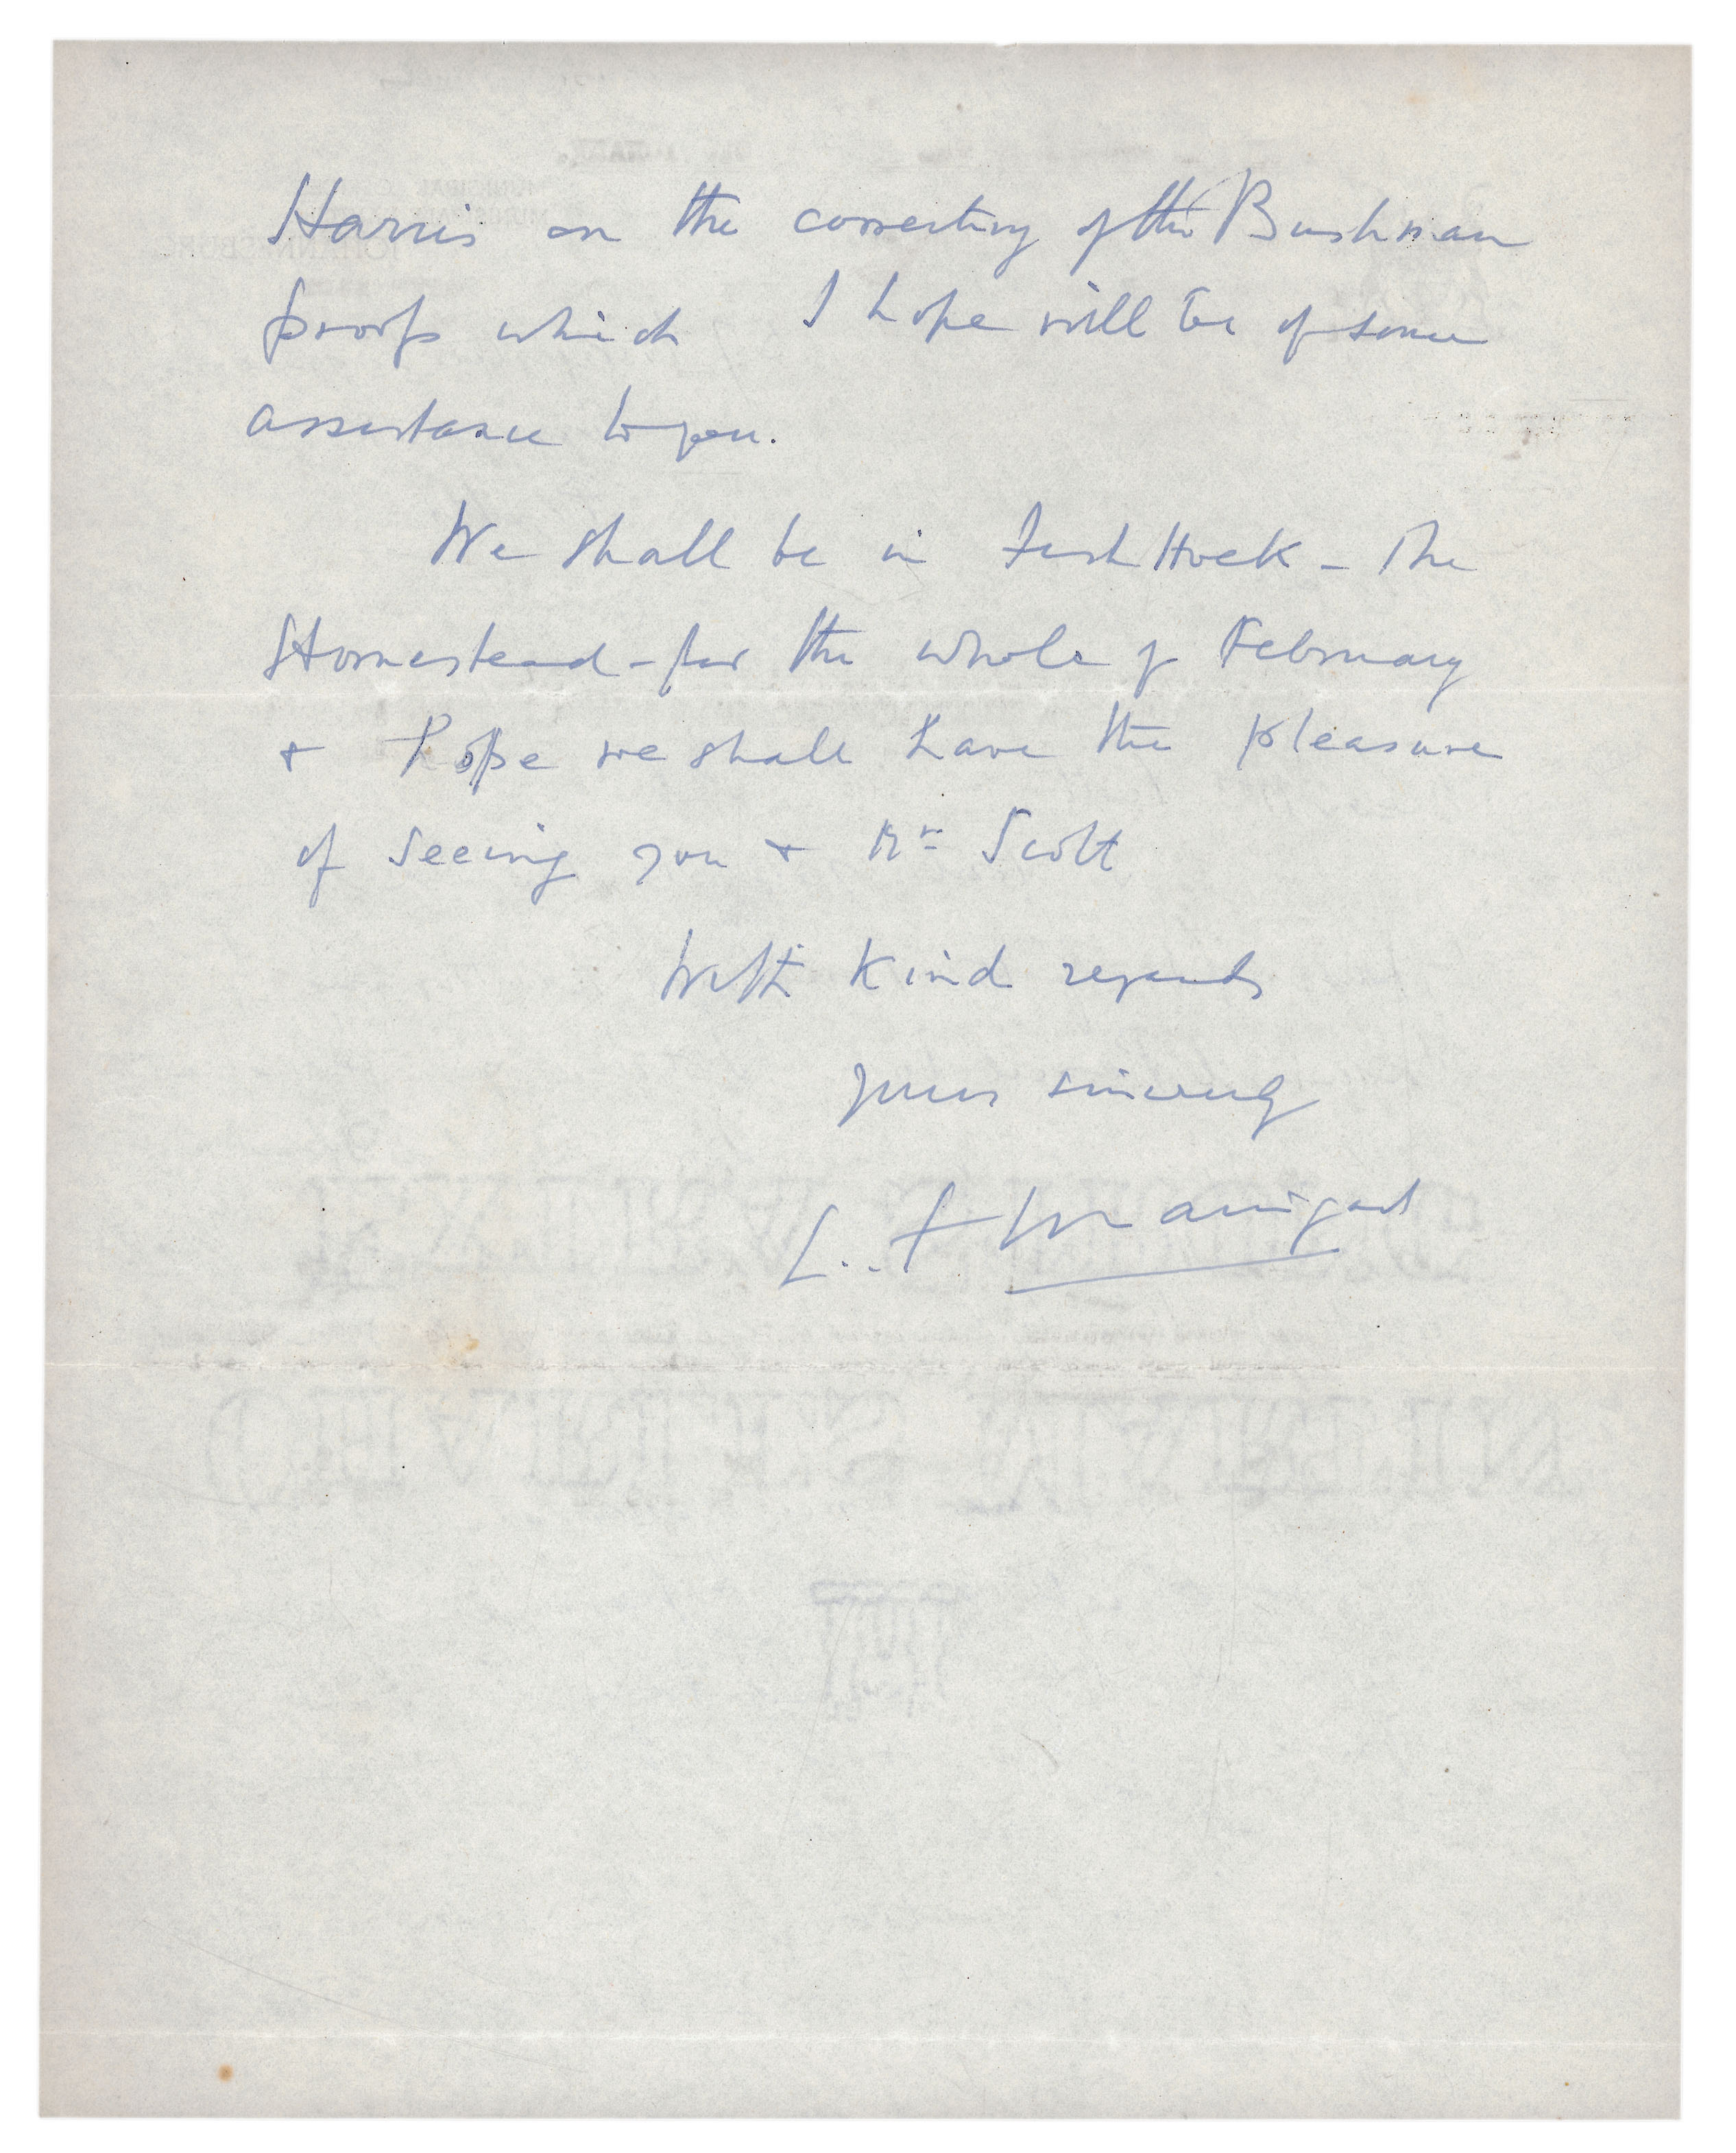 Harris on the correcting of the Bushman
proofs which I hope will be of some
assistance to you.
We shall be in Fish Hoek - The
Homestead - for the whole of February
& hope we shall have the pleasure
of seeing you & Mrs Scott
With kind regards
Yours sincerely
L. F. Maingard